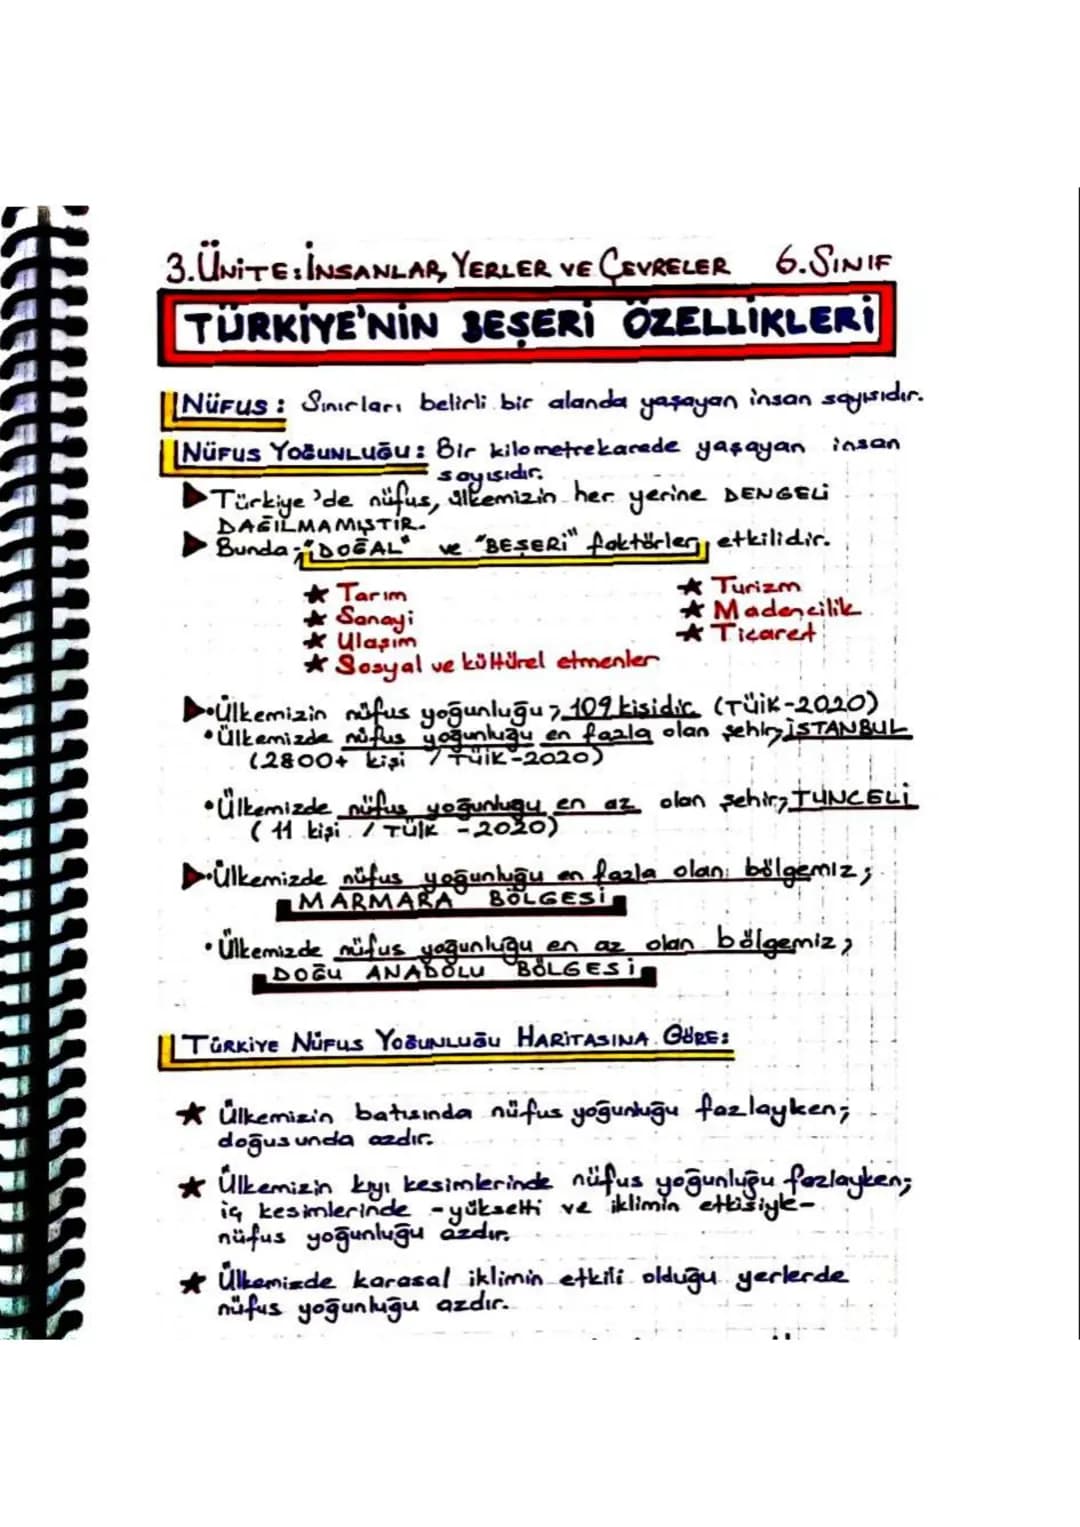 3.ÜNİTE: İNSANLAR, YERLER VE ÇEVRELER 6.SINIF
TÜRKİYE'NİN BEŞERİ ÖZELLİKLERİ
NÜFUS: Sınırları belirli bir alanda yaşayan insan sayısıdır.
NÜFUS YOĞUNLUĞU: Bir kilometrekarede yaşayan insan
sayısıdır.
Türkiye'de nüfus, ülkemizin her yerine DENGELİ
DAĞILMAMIŞTIR.
Bunda; "DOĞAL" ve "BEŞERİ" faktörler etkilidir.
★ Tarım
★ Sanayi
★ Ulaşım
★ Sosyal ve kültürel etmenler
★ Turizm
★ Madencilik
★ Ticaret
•Ülkemizin nüfus yoğunluğu; 109 kişidir. (TÜİK-2020)
•Ülkemizde nüfus yoğunluğu en fazla olan şehir; İSTANBUL
(2800+ kişi / TÜİK-2020)
•Ülkemizde nüfus yoğunluğu en az olan şehir; TUNCELİ
(11 kişi / TÜİK - 2020)
•Ülkemizde nüfus yoğunluğu en fazla olan bölgemiz;
MARMARA BÖLGESİ
•Ülkemizde nüfus yoğunluğu en az olan bölgemiz;
DOĞU ANADOLU BÖLGESİ
TÜRKİYE NÜFUS YOĞUNLUĞU HARİTASINA GÖRE:
★ Ülkemizin batısında nüfus yoğunluğu fazlayken;
doğusunda azdır.
★ Ülkemizin kıyı kesimlerinde nüfus yoğunluğu fazlayken;
iç kesimlerinde -yükselti ve iklimin etkisiyle-
nüfus yoğunluğu azdır.
★ Ülkemizde karasal iklimin etkili olduğu yerlerde
nüfus yoğunluğu azdır.